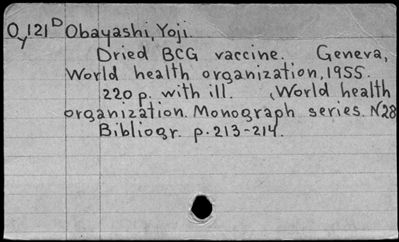 Oy121D Obayashi, Yoji.
Dried BCG vaccine. Geneva,
World health organization, 1955.
220 p. with ill. (World health
organization. Monograph series. N28
Bibliogr. p. 213-214.